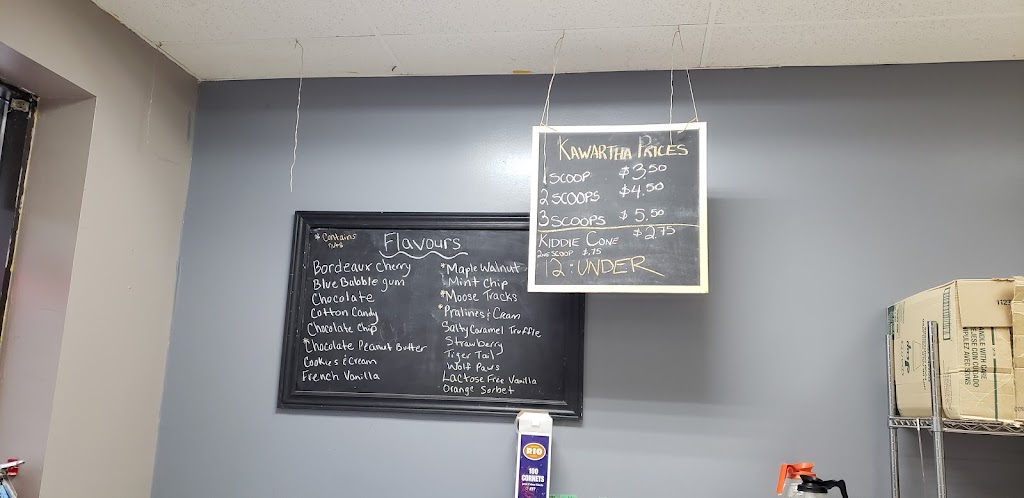 Kawartha Prices
1 Scoop $3.50
2 Scoops $4.50
3 Scoops $5.50
Kiddie Cone $2.75
2nd Scoop $.75
12 : Under
* Contains nuts
Flavours
Bordeaux Cherry
Blue Bubble gum
Chocolate
Cotton Candy
Chocolate Chip
*Chocolate Peanut Butter
Cookies & Cream
French Vanilla
*Maple Walnut
Mint Chip
*Moose Tracks
*Pralines & Cream
Salty Caramel Truffle
Strawberry
Tiger Tail
Wolf Paws
Lactose Free Vanilla
Orange Sorbet
RIO
100
CORNETS